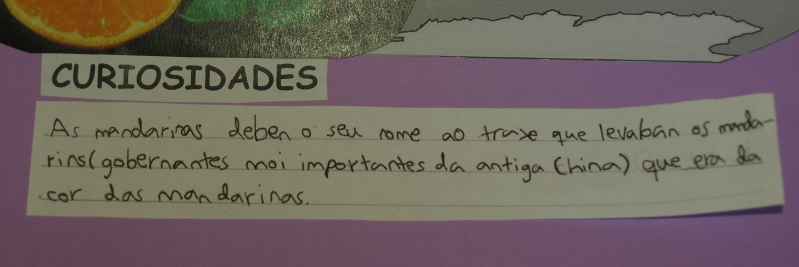 CURIOSIDADES
As mandarinas deben o seu nome ao traxe que levaban os manda-
rins(gobernantes moi importantes da antiga China) que era da
cor das mandarinas.